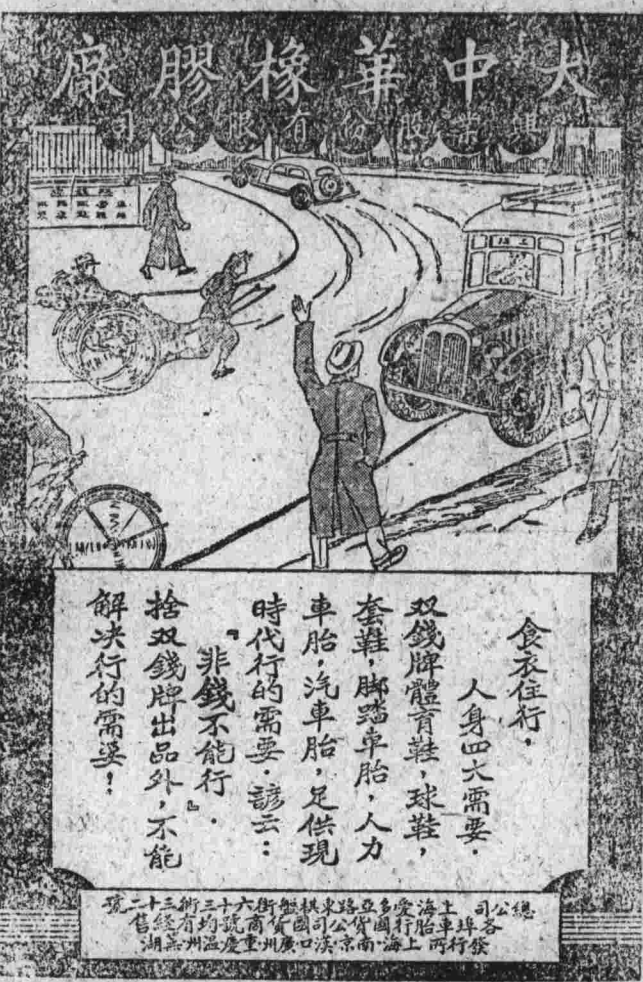 大中華橡膠廠
興業股份有限公司
食衣住行,
人身四大需要.
双錢牌體育鞋,球鞋,
套鞋,脚踏車胎,人力
車胎,汽車胎,足供現
時代行的需要.諺云:
『非錢不能行』.
捨双錢牌出品外,不能
解决行的需要!
總公司 上海愛多亞路東棋盤街六十三衖三十二號
各埠車胎行國貨公司國貨商號均有經售
發行所 上海·南京·漢口·廣州·重慶·溫州·蕪湖